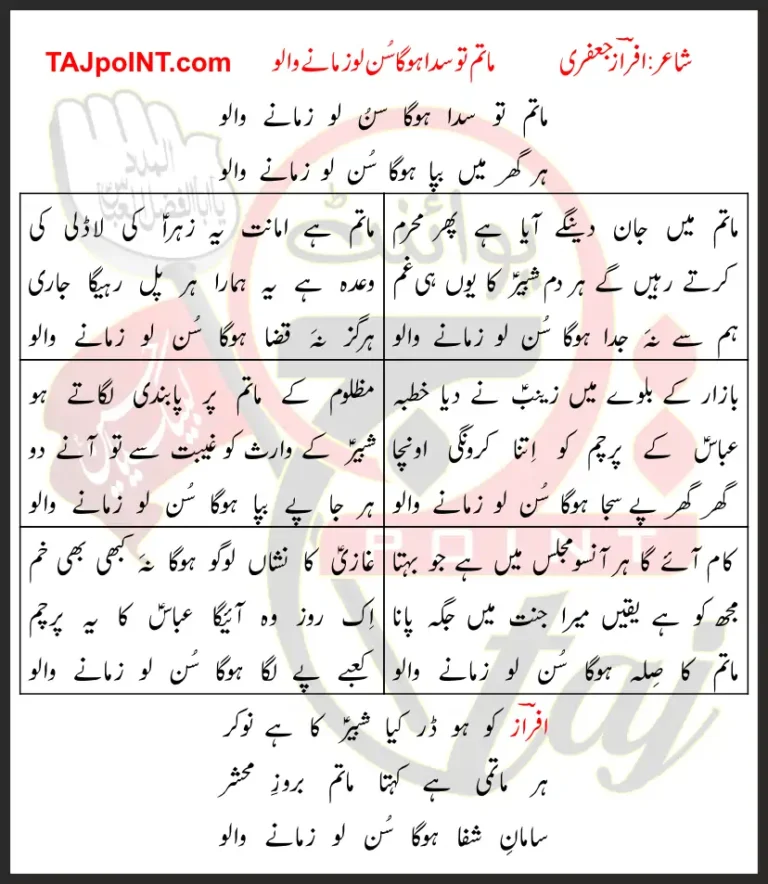 شاعر: افرازؔ جعفری ماتم تو سدا ہوگا سُن لو زمانے والو TAJpoINT.com
ماتم تو سدا ہوگا سنُ لو زمانے والو
ہر گھر میں بپا ہوگا سُن لو زمانے والو
ماتم میں جان دینگے آیا ہے پھر محرم
کرتے رہیں گے ہر دم شبیرؑ کا یوں ہی غم
ہم سے نہَ جدا ہوگا سُن لو زمانے والو
ماتم ہے امانت یہ زہراؑ کی لاڈلی کی
وعدہ ہے یہ ہمارا ہر پل رہیگا جاری
ہرگز نہَ قضا ہوگا سُن لو زمانے والو
بازار کے بلوے میں زینبؑ نے دیا خطبہ
عباسؑ کے پرچم کو اِتنا کرونگی اونچا
گھر گھر پے سجا ہوگا سُن لو زمانے والو
مظلوم کے ماتم پر پابندی لگاتے ہو
شبیرؑ کے وارث کو غیبت سے تو آنے دو
ہر جا پے بپا ہوگا سُن لو زمانے والو
کام آئے گا ہر آنسو مجلس میں ہے جو بہتا
مجھ کو ہے یقیں میرا جنت میں جگہ پانا
ماتم کا صِلہ ہوگا سُن لو زمانے والو
غازیؑ کا نشاں لوگو ہوگا نہَ کبھی بھی خم
اِک روز وہ آئیگا عباسؑ کا یہ پرچم
کعبے پے لگا ہوگا سُن لو زمانے والو
افرازؔ کو ہو ڈر کیا شبیرؑ کا ہے نوکر
ہر ماتمی ہے کہتا ماتم بروزِ محشر
سامانِ شفا ہوگا سُن لو زمانے والو
المدد
یا ابا الفضل العباس
پوائنٹ
تاج
POINT
taj